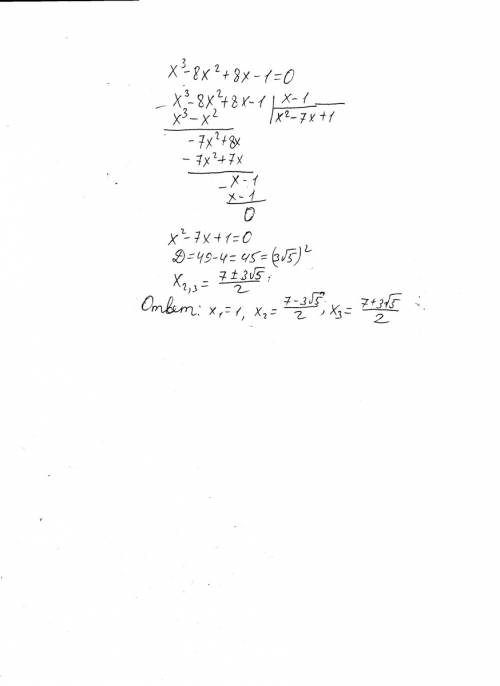 x³-8x²+8x-1=0
- x³-8x²+8x-1 | x-1
x³-x² | x²-7x+1
-7x²+8x
- 7x²+7x
- x-1
x-1
0
x²-7x+1=0
D=49-4=45=(3√5)²
x₂,₃= (7±3√5)/2;
Ответ: x₁=1, x₂= (7-3√5)/2, x₃= (7+3√5)/2